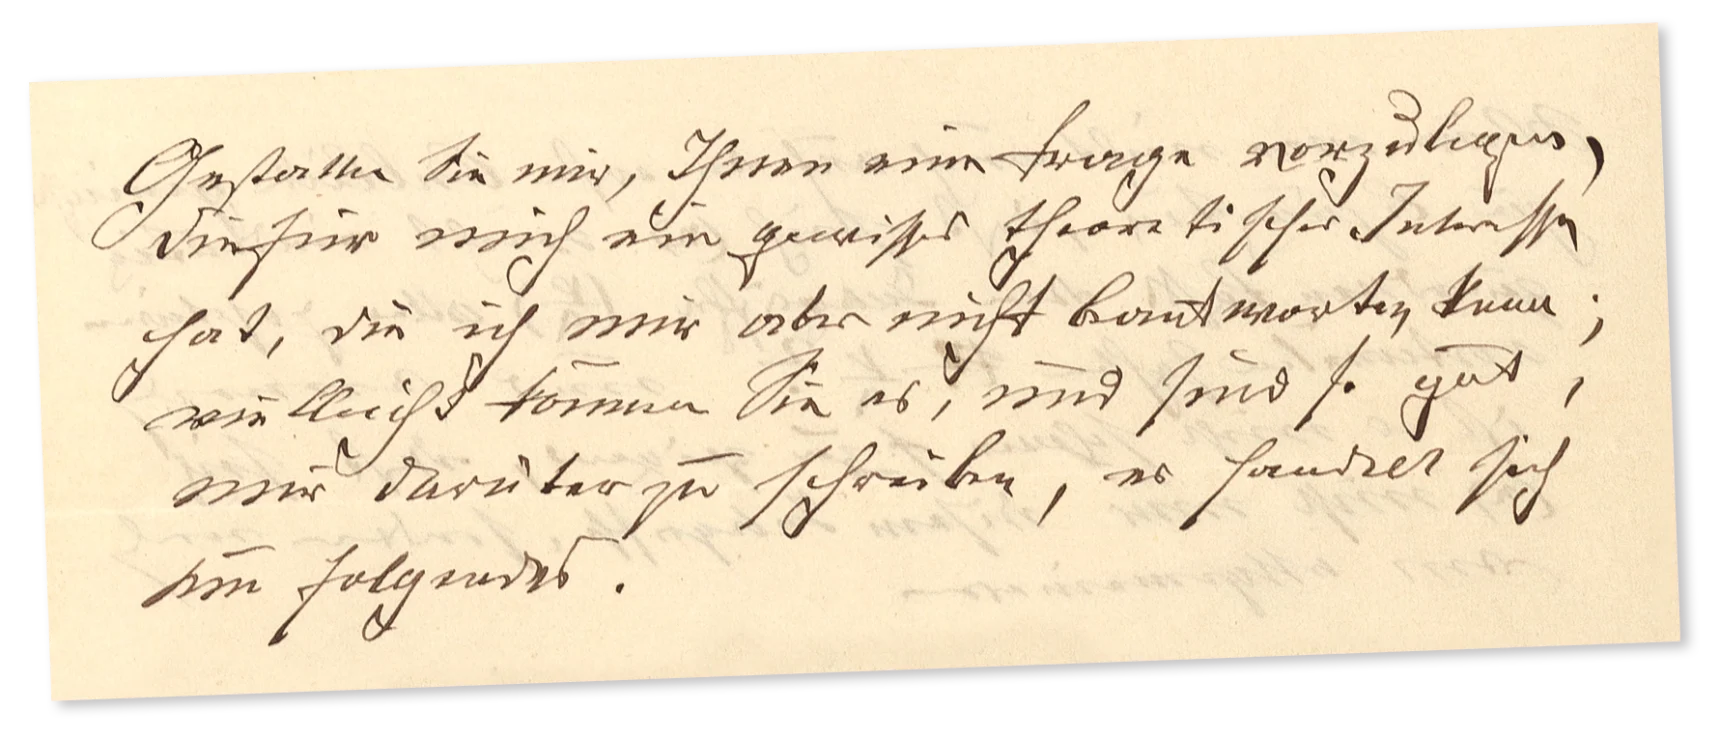 Gestatten Sie mir, Ihnen eine Frage vorzulegen,
die für mich ein gewisses theoretisches Interesse
hat, die ich mir aber nicht beantworten kann;
vielleicht können Sie es, und sind s. gut,
mir darüber zu schreiben, es handelt sich
um folgendes.